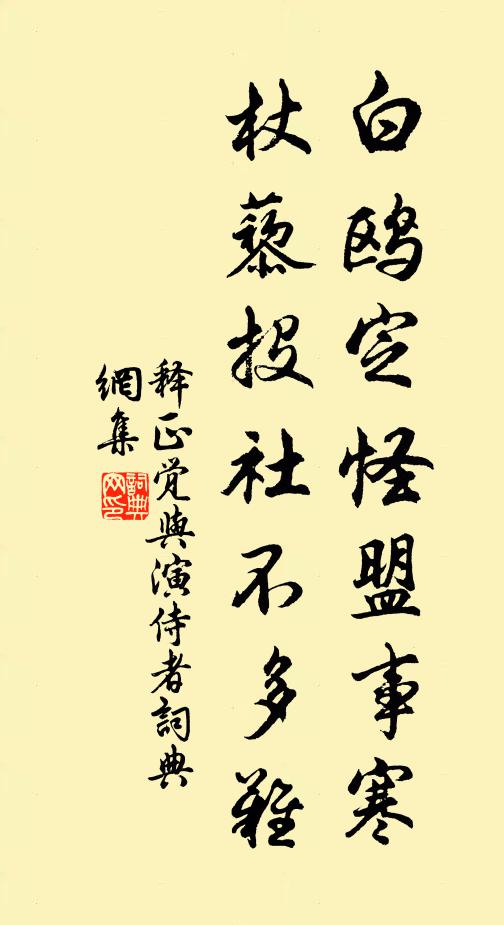 白鸥定怪盟事寒
杖藜投社不多難
释正觉與演侍者詞典
網集
詞典
网印